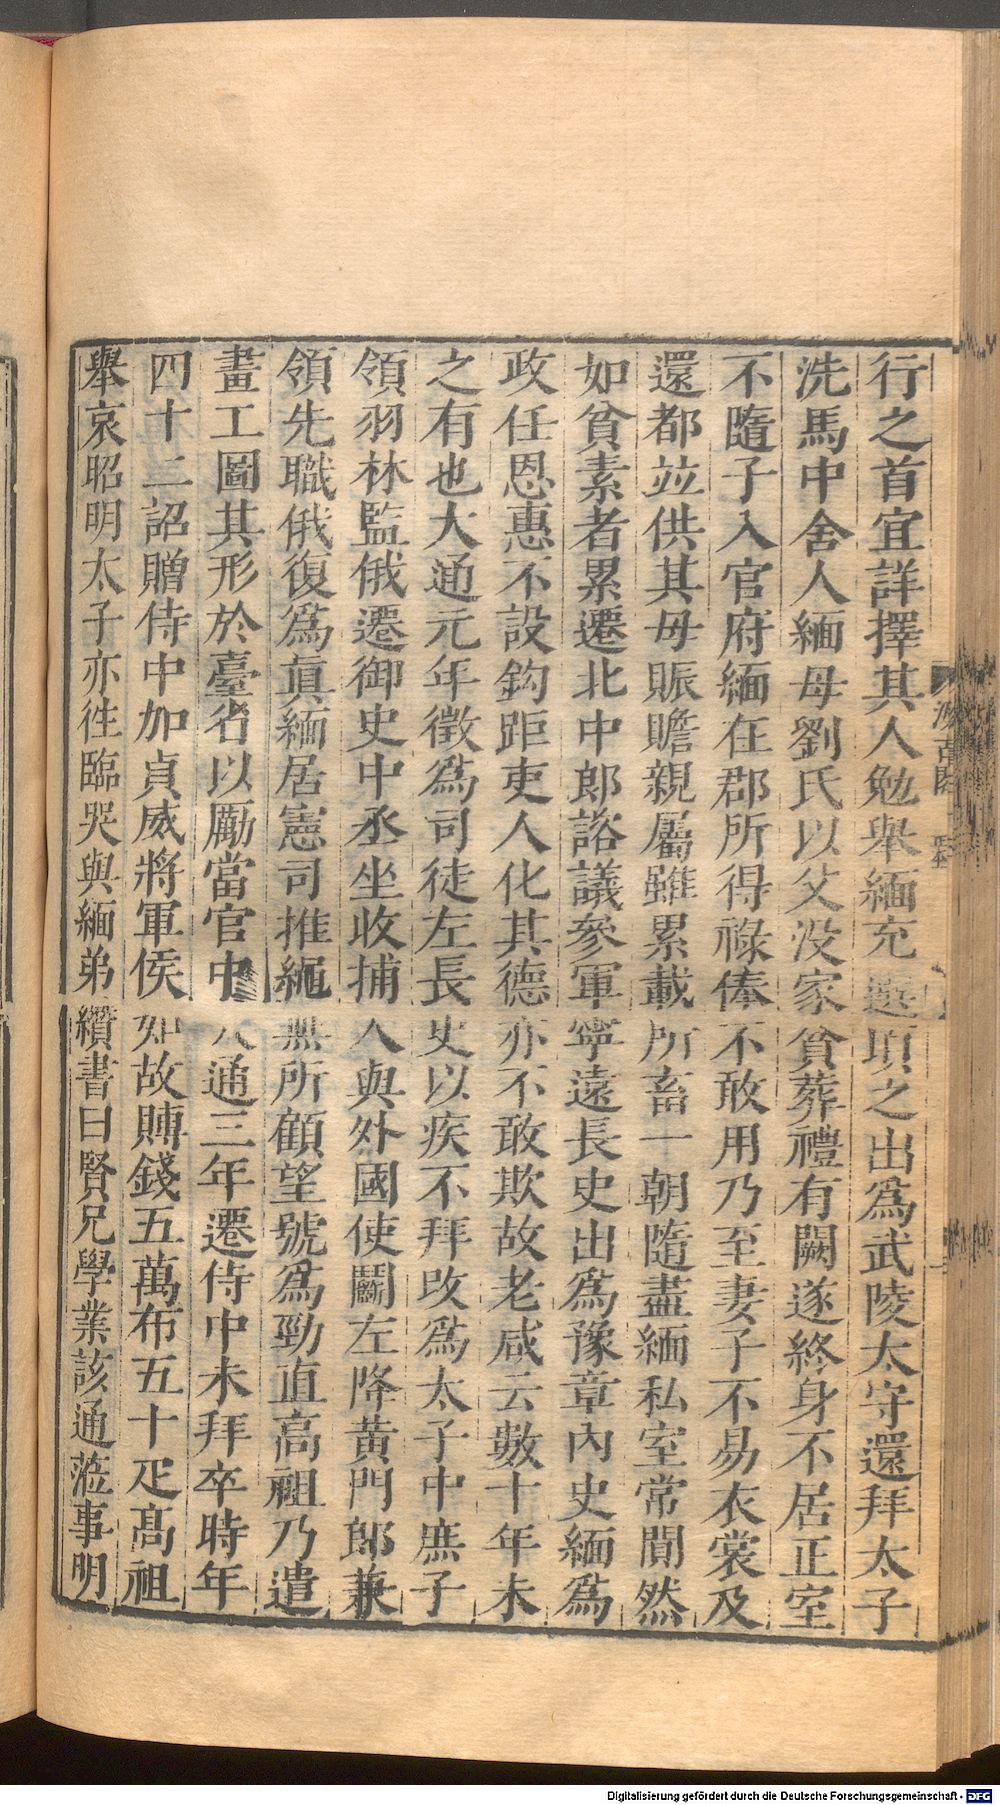 行之首宜詳擇其人勉舉緬充選頃之出爲武陵太守還拜太子
洗馬中舍人緬母劉氏以父没家貧葬禮有闕遂終身不居正室
不隨子入官府緬在郡所得祿俸不敢用乃至妻子不易衣裳及
還都並供其母賑贍親屬雖累載所畜一朝隨盡緬私室常閴然
如貧素者累遷北中郎諮議參軍寧遠長史出爲豫章內史緬爲
政任恩惠不設鈎距吏人化其德亦不敢欺故老咸云數十年未
之有也大通元年徵爲司徒左長史以疾不拜改爲太子中庶子
領羽林監俄遷御史中丞坐收捕人與外國使鬭左降黃門郎兼
領先職俄復爲眞緬居憲司推繩無所顧望號爲勁直高祖乃遣
畫工圖其形於臺省以勵當官中大通三年遷侍中未拜卒時年
四十二詔贈侍中加貞威將軍侯如故賻錢五萬布五十疋高祖
舉哀昭明太子亦往臨哭與緬弟纘書曰賢兄學業該通蒞事明
Digitalisierung gefördert durch die Deutsche Forschungsgemeinschaft - DFG